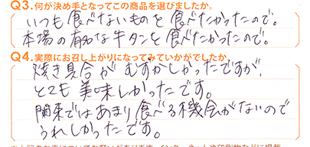 Q3.何が決め手となってこの商品を選びましたか。
いつも食べないものを食べたかったので。
本場の有名な牛タンを食べたかったので。
Q4.実際にお召し上がりになってみていかがでしたか。
焼き具合がむずかしかったですが、
とても美味しかったです。
関東ではあまり食べる機会がないので
うれしかったです。